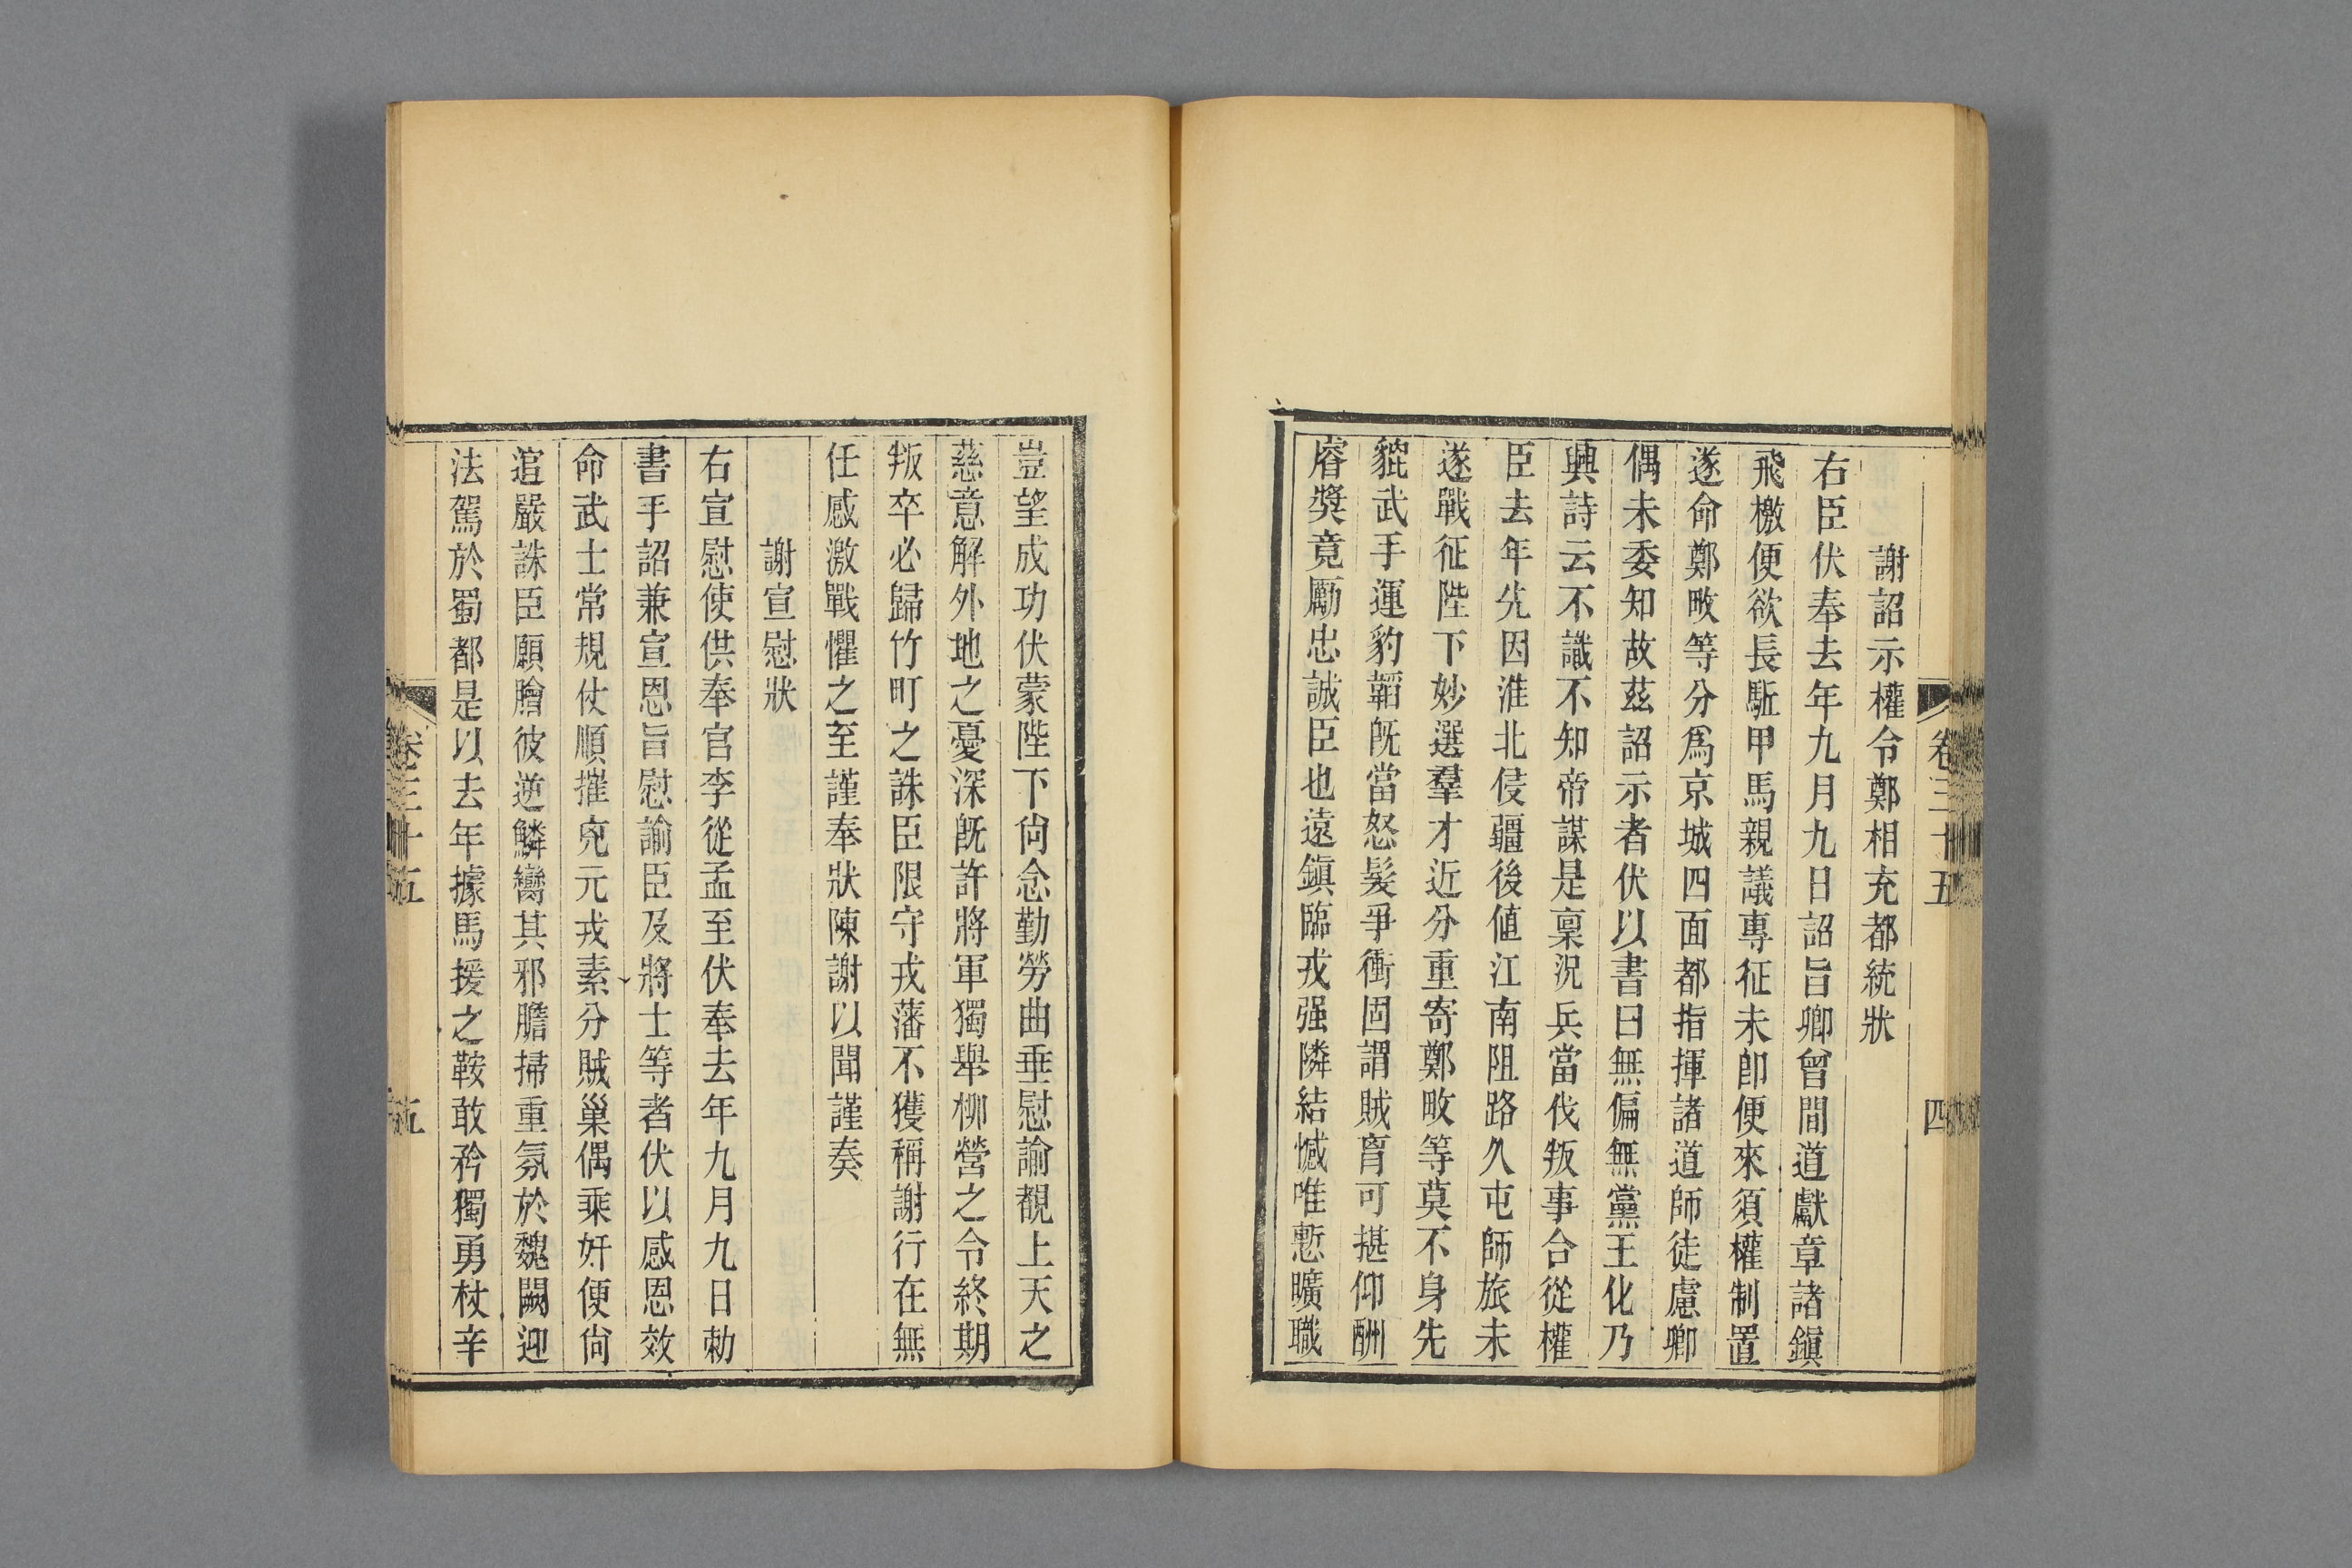 謝詔示權令鄭相充都統狀
右臣伏奉去年九月九日詔旨卿曾間道獻章諸鎭
飛檄便欲長駈甲馬親議專征未卽便來須權制置
遂命鄭畋等分爲京城四面都指揮諸道師徒慮卿
偶未委知故茲詔示者伏以書曰無偏無黨王化乃
興詩云不識不知帝謀是稟況兵當伐叛事合從權
臣去年先因淮北侵疆後値江南阻路久屯師旅未
遂戰征陛下妙選羣才近分重寄鄭畋等莫不身先
貔武手運豹韜旣當怒髮爭衝固謂賊肓可揕仰酬
睿奬竟勵忠誠臣也遠鎭臨戎强隣結憾唯慙曠職
卷三十五
四
豈望成功伏蒙陛下尙念勤勞曲垂慰諭覩上天之
慈意解外地之憂深旣許將軍獨舉柳營之令終期
叛卒必歸竹町之誅臣限守戎藩不獲稱謝行在無
任感激戰懼之至謹奉狀陳謝以聞謹奏
謝宣慰狀
右宣慰使供奉官李從孟至伏奉去年九月九日勅
書手詔兼宣恩旨慰諭臣及將士等者伏以感恩效
命武士常規仗順摧兇元戎素分賊巢偶乘奸便尙
逭嚴誅臣願膾彼逆鱗臠其邪膽掃重氛於魏闕迎
法駕於蜀都是以去年據馬援之鞍敢矜獨勇杖辛
卷三十五
五